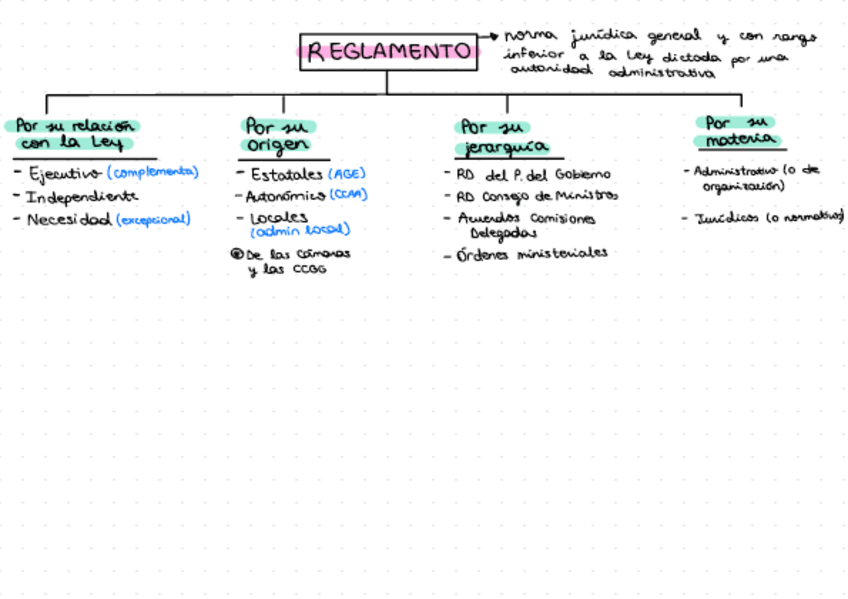 REGLAMENTO
norma jurídica general y con rango
inferior a la Ley dictada por una
autoridad administrativa
Por su relación
con la Ley
- Ejecutivo (complementa)
- Independiente
- Necesidad (excepcional)
Por su
origen
- Estatales (AGE)
- Autonómico (CCAA)
- Locales
(admin local)
De las Cámaras
y las CCGG
Por su
jerarquía
- RD del P. del Gobierno
- RD Consejo de Ministros
- Acuerdos Comisiones
Delegadas
- Órdenes ministeriales
Por su
materia
- Administrativo (o de
organización)
- Jurídicos (o normativos)